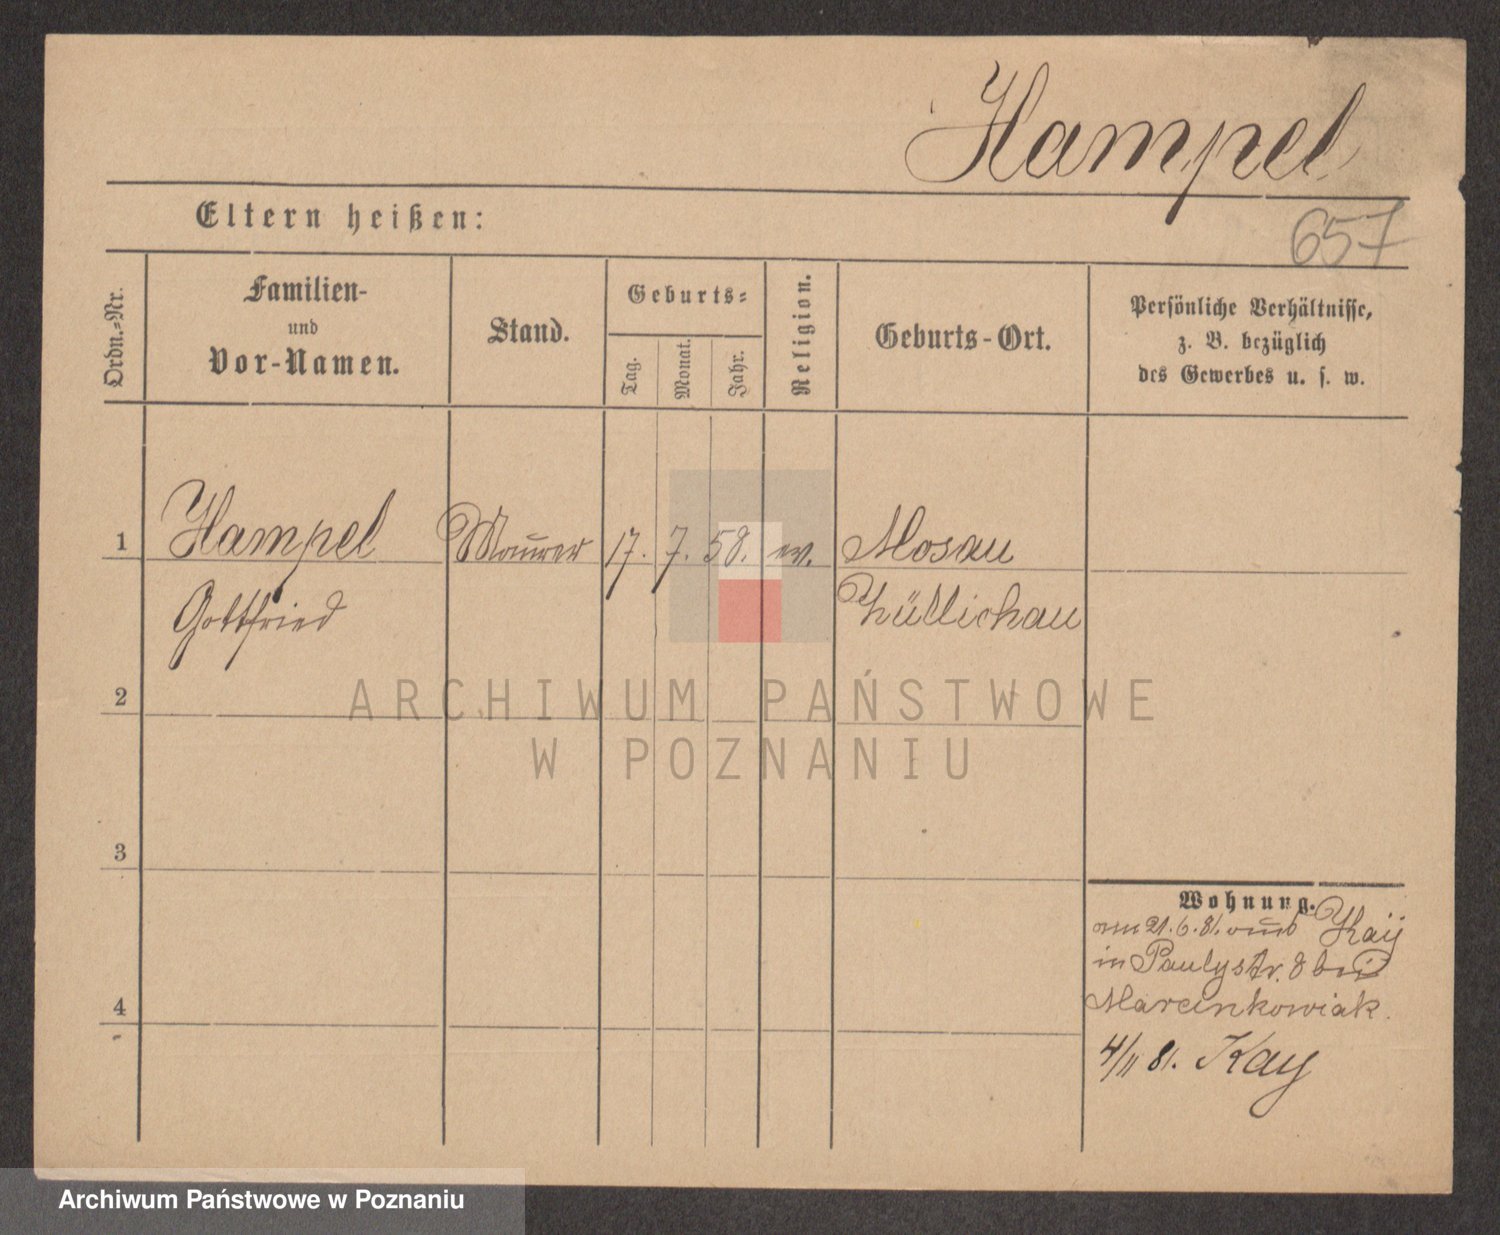 Hampel
657
Eltern heißen:
Ordn.=Nr.
Familien-
und
Vor-Namen.
Stand.
Geburts=
Tag.
Monat.
Jahr.
Religion.
Geburts-Ort.
Persönliche Verhältnisse,
z. B. bezüglich
des Gewerbes u. s. w.
1 Hampel Maurer 17. 7. 58. ev. Mosau
Gottfried Züllichau
2
3
4
Wohnung.
am 21.6.81. aus Kay
in Paulystr. 8 bei
Marcinkowiak.
4/11 81. Kay
ARCHIWUM PAŃSTWOWE
W POZNANIU
Archiwum Państwowe w Poznaniu